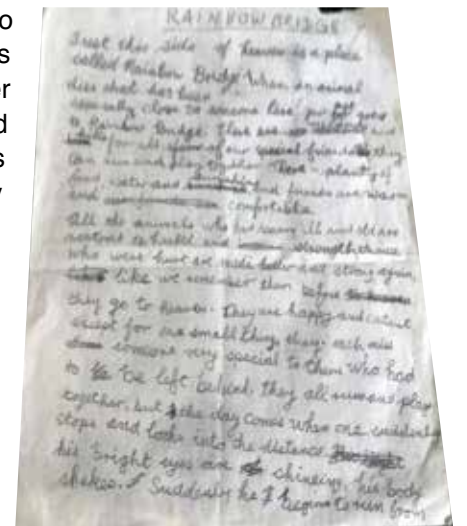 o
s
er
d
s
y
RAINBOW BRIDGE
Just this side of heaven is a place
called Rainbow Bridge When an animal
dies that has been
especially close to someone here pet goes
to Rainbow Bridge. There are and
for of our special friends they
can run and play together. There plenty of
food water and and friends are warm
and comfortable.
All the animals who ill and old are
restored to health and
who were hurt are made better and strong again,
like we remember them before
they go to heaven. They are happy and content
except for one small thing, they each miss
someone very special to them who had
to be left behind. they all run and play
together, but the day comes when one suddenly
stops and looks into the distance.
his bright eyes are his body
shakes. Suddenly he begins to run from